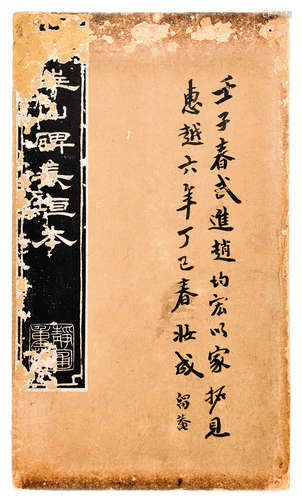 壬子春武進趙均宏以家拓見
惠越六年丁巳春妝成
華山碑長垣本